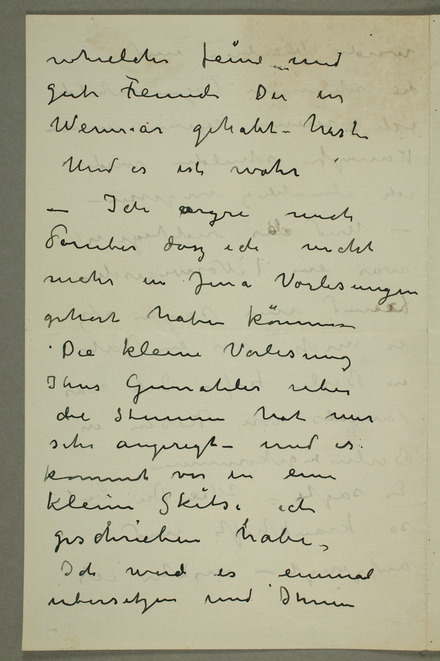 feine und
gute Freunde Du in
Weimar gehabt hast
Und es ist wahr
— Ich ärgre mich
darüber dasz ich nicht
mehr in Jena Vorlesungen
gehört haben können
Die kleine Vorlesung
Ihres über
die Stimmen hat mir
sehr angeregt – und es
kommt vor in eine
kleine Skitse ich
geschrieben habe,
Ich werd es einmal
übersetzen und Ihnen